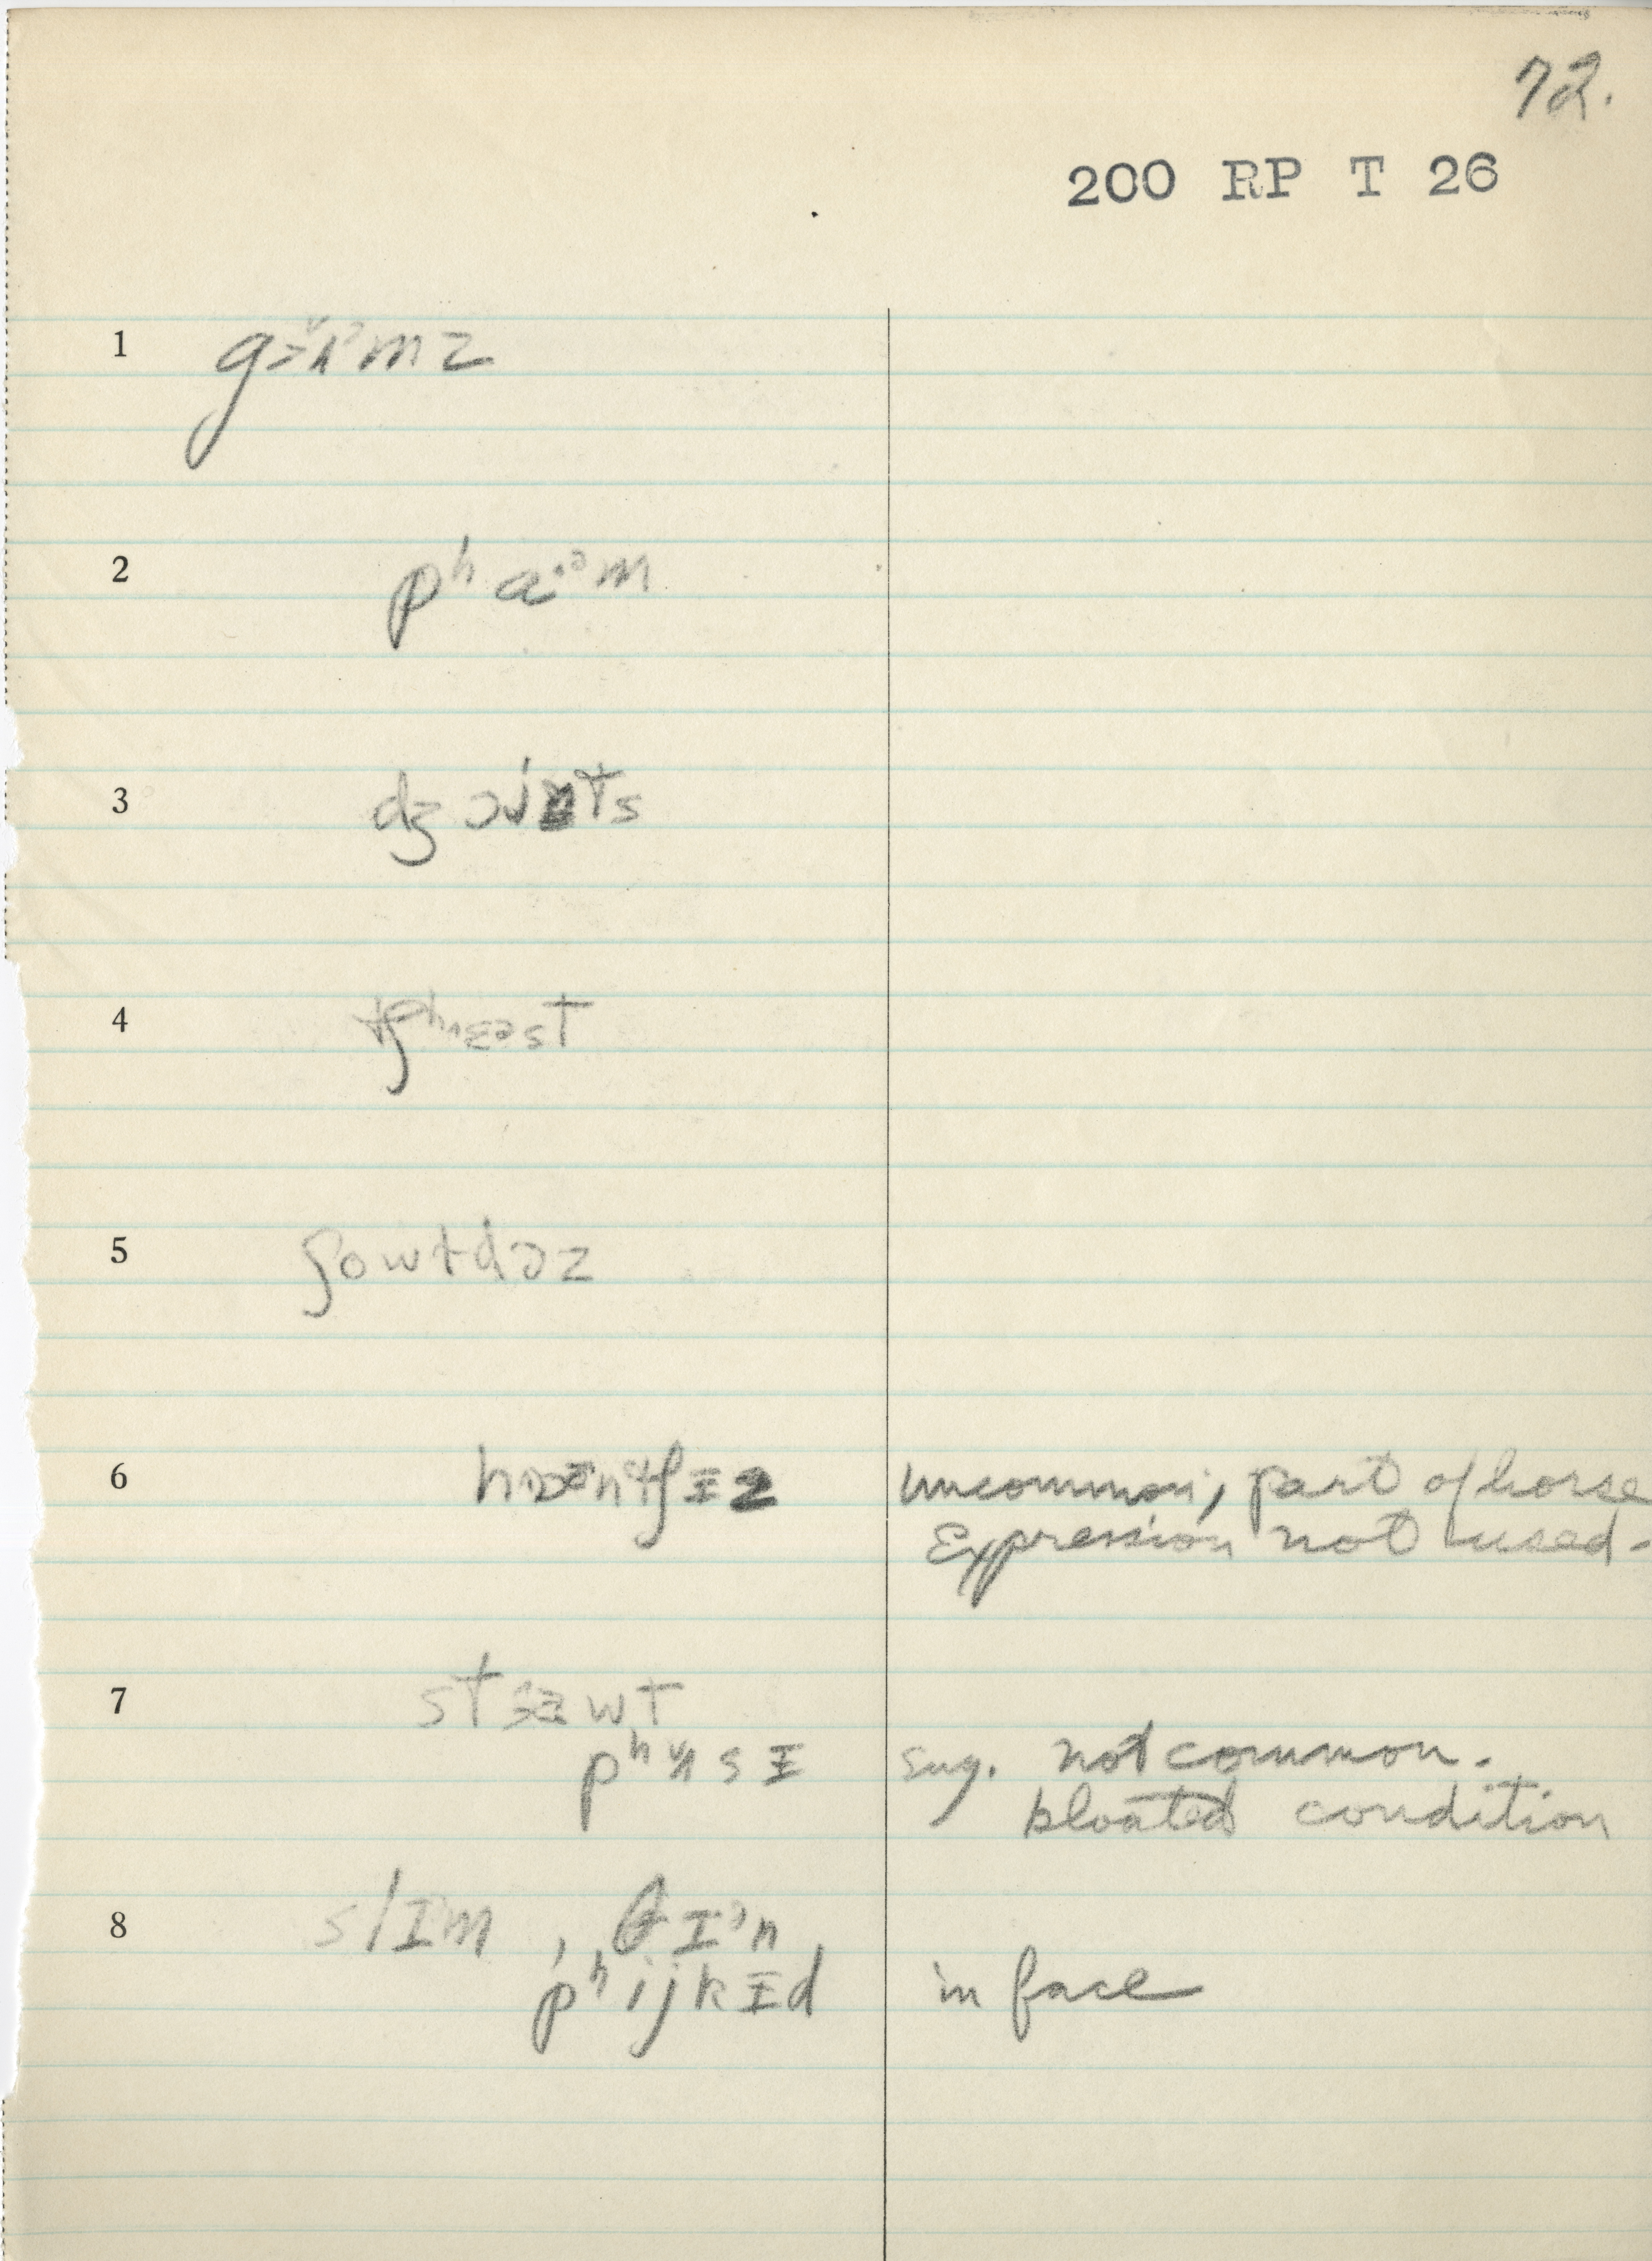 72.
200 RP T 26
1
2 pʰaˑᵊm
3 dʒɔjnts
4
5 ʃowɫdəz
6
uncommon, part of horse
Expression not used-
7
pʰʌsɪ sug. not common.
bloated condition
8 slɪm, θɪᵊn
pʰijkɪd in face